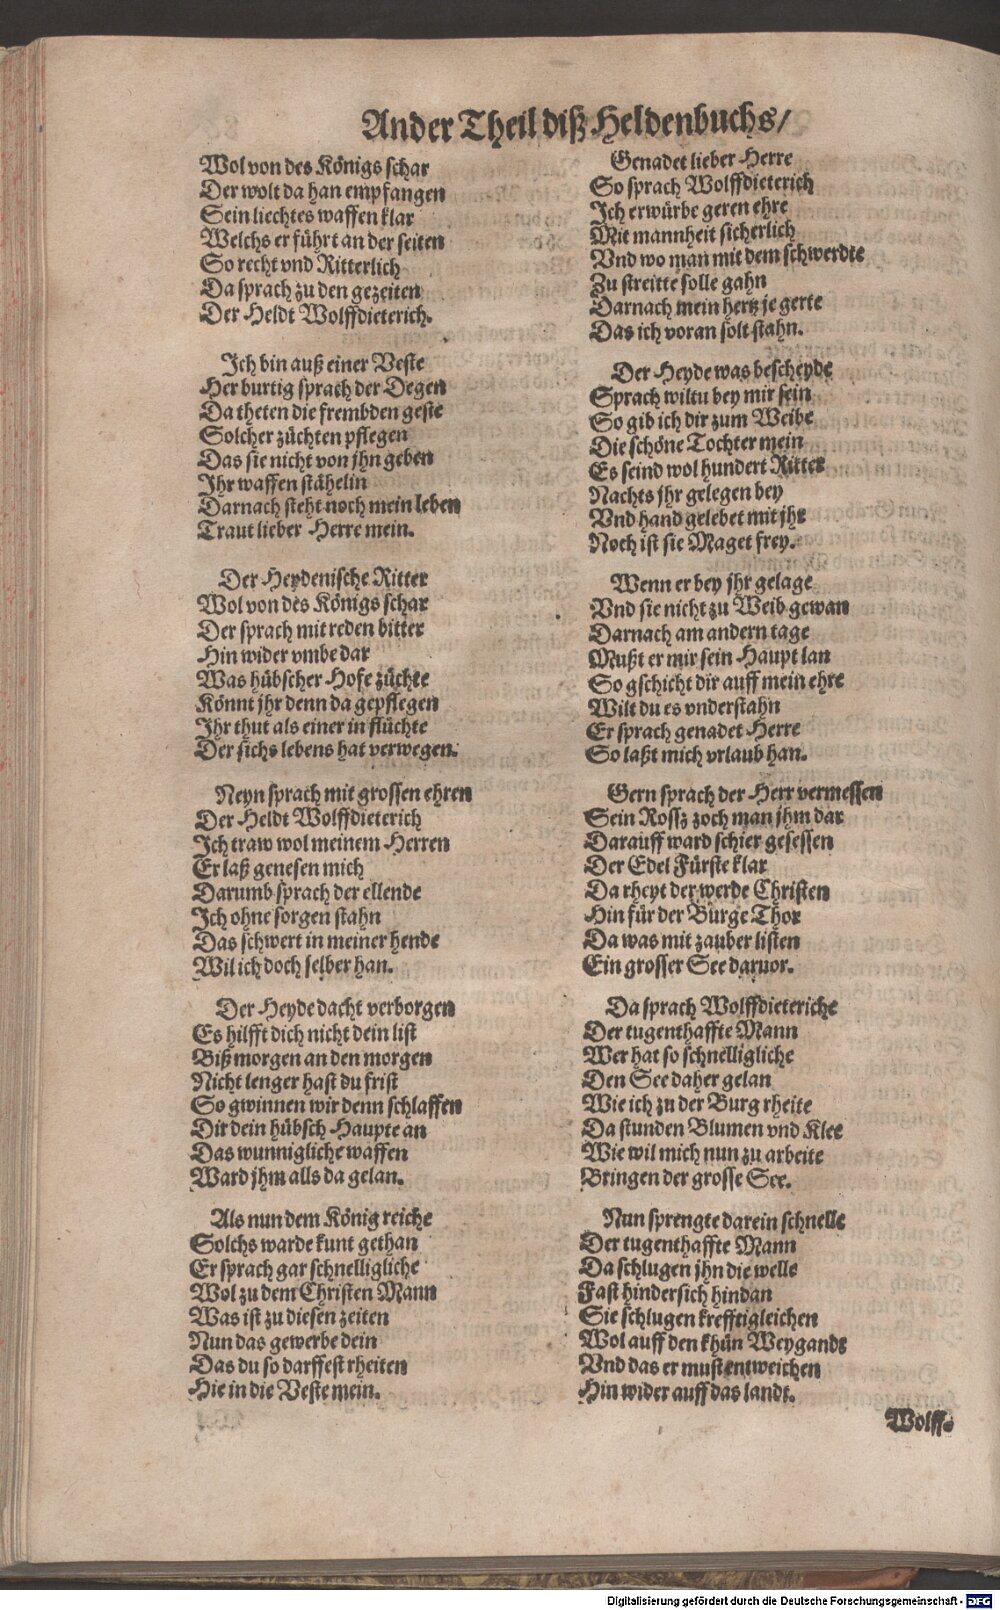 Ander Theil diß Heldenbuchs/
Wol von des Königs schar
Der wolt da han empfangen
Sein liechtes waffen klar
Welchs er führt an der seiten
So recht vnd Ritterlich
Da sprach zu den gezeiten
Der Heldt Wolffdieterich.
Ich bin auß einer Veste
Her burtig sprach der Degen
Da theten die frembden geste
Solcher züchten pflegen
Das sie nicht von jhn geben
Jhr waffen stähelin
Darnach steht noch mein leben
Traut lieber Herre mein.
Der Heydenische Ritter
Wol von des Königs schar
Der sprach mit reden bitter
Hin wider vmbe dar
Was hübscher Hofe züchte
Könnt jhr denn da gepflegen
Jhr thut als einer in flüchte
Der sichs lebens hat verwegen.
Neyn sprach mit grossen ehren
Der Heldt Wolffdieterich
Ich traw wol meinem Herren
Er laß genesen mich
Darumb sprach der ellende
Ich ohne sorgen stahn
Das schwert in meiner hende
Wil ich doch selber han.
Der Heyde dacht verborgen
Es hilfft dich nicht dein list
Biß morgen an den morgen
Nicht lenger hast du frist
So gwinnen wir denn schlaffen
Dir dein hübsch Haupte an
Das wunnigliche waffen
Ward jhm alls da gelan.
Als nun dem König reiche
Solchs warde kunt gethan
Er sprach gar schnelligliche
Wol zu dem Christen Mann
Was ist zu diesen zeiten
Nun das gewerbe dein
Das du so darffest rheiten
Hie in die Veste mein.
Genadet lieber Herre
So sprach Wolffdieterich
Ich erwürbe geren ehre
Mit mannheit sicherlich
Vnd wo man mit dem schwerdte
Zu streitte solle gahn
Darnach mein hertz je gerte
Das ich voran solt stahn.
Der Heyde was bescheyde
Sprach wiltu bey mir sein
So gib ich dir zum Weibe
Die schöne Tochter mein
Es seind wol hundert Ritter
Nachts jhr gelegen bey
Vnd hand gelebet mit jhr
Noch ist sie Maget frey.
Wenn er bey jhr gelage
Vnd sie nicht zu Weib gewan
Darnach am andern tage
Mußt er mir sein Haupt lan
So gschicht dir auff mein ehre
Wilt du es vnderstahn
Er sprach genadet Herre
So laßt mich vrlaub han.
Gern sprach der Herr vermessen
Sein Rossz zoch man jhm dar
Darauff ward schier gesessen
Der Edel Fürste klar
Da rheyt der werde Christen
Hin für der Burge Thor
Da was mit zauber listen
Ein grosser See daruor.
Da sprach Wolffdieteriche
Der tugenthaffte Mann
Wer hat so schnelligliche
Den See daher gelan
Wie ich zu der Burg rheite
Da stunden Blumen vnd Klee
Wie wil mich nun zu arbeite
Bringen der grosse See.
Nun sprengte darein schnelle
Der tugenthaffte Mann
Da schlugen jhn die welle
Fast hindersich hindan
Sie schlugen krefftigleichen
Wol auff den khün Weygandt
Vnd das er must entweichen
Hin wider auff das landt.
Wolff-
Digitalisierung gefördert durch die Deutsche Forschungsgemeinschaft - DFG